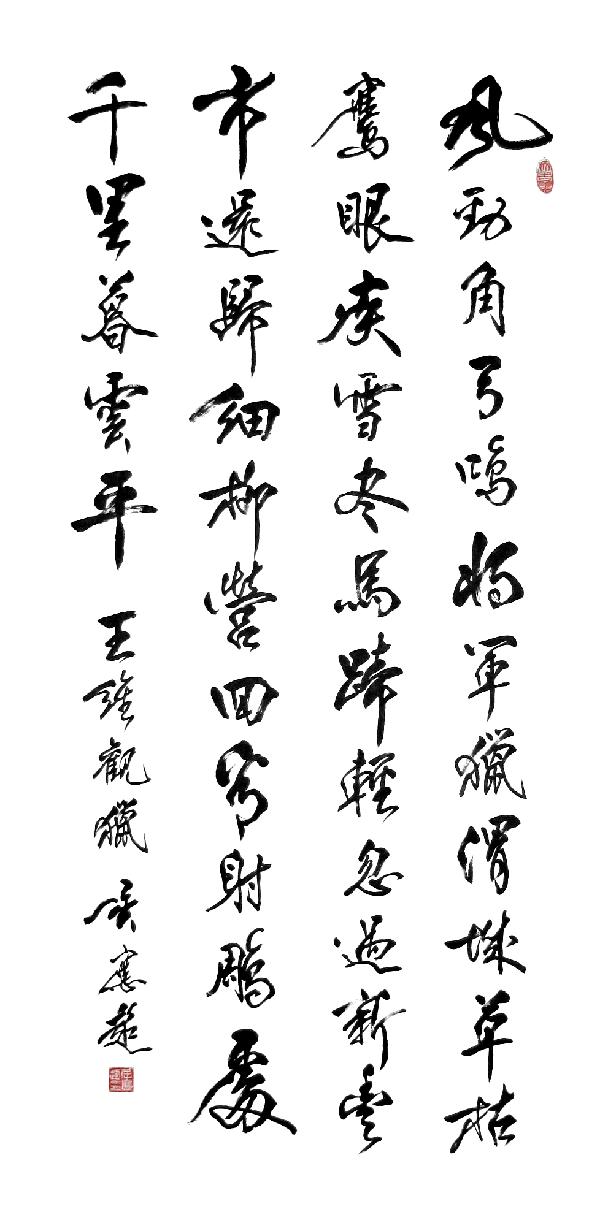 風勁角弓鳴將軍獵渭城草枯
鷹眼疾雪尽馬蹄輕忽過新豐
市還歸細柳營回看射鵰處
千里暮雲平 王維觀獵